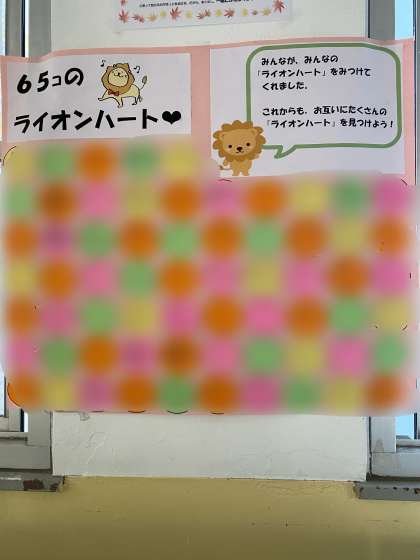 65コの
ライオンハート❤
みんなが、みんなの
「ライオンハート」をみつけて
くれました。
これからも、お互いにたくさんの
「ライオンハート」を見つけよう!